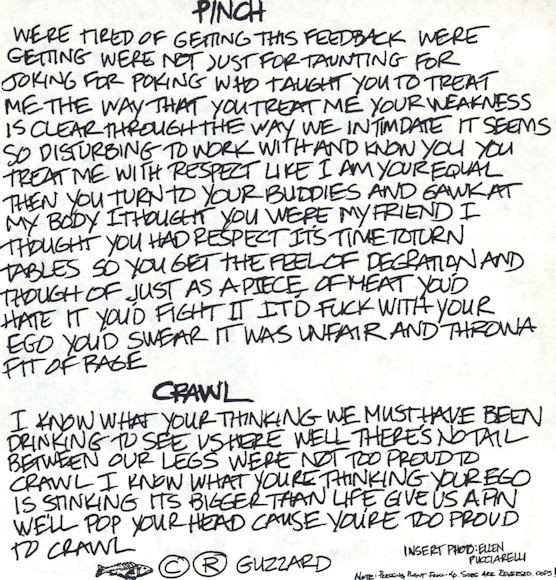 PINCH
WERE TIRED OF GETTING THIS FEEDBACK WERE
GETTING WERE NOT JUST FOR TAUNTING FOR
JOKING FOR POKING WHO TAUGHT YOU TO TREAT
ME THE WAY THAT YOU TREAT ME YOUR WEAKNESS
IS CLEAR THROUGH THE WAY WE INTIMDATE IT SEEMS
SO DISTURBING TO WORK WITH AND KNOW YOU YOU
TREAT ME WITH RESPECT LIKE I AM YOUR EQUAL
THEN YOU TURN TO YOUR BUDDIES AND GAWK AT
MY BODY I THOUGHT YOU WERE MY FRIEND I
THOUGHT YOU HAD RESPECT IT'S TIME TO TURN
TABLES SO YOU GET THE FEEL OF DEGRATION AND
THOUGH OF JUST AS A PIECE OF MEAT YOU'D
HATE IT YOU'D FIGHT IT IT'D FUCK WITH YOUR
EGO YOU'D SWEAR IT WAS UNFAIR AND THROW A
FIT OF RAGE
CRAWL
I KNOW WHAT YOUR THINKING WE MUST HAVE BEEN
DRINKING TO SEE US HERE WELL THERE'S NO TAIL
BETWEEN OUR LEGS WERE NOT TOO PROUD TO
CRAWL I KNOW WHAT YOU'RE THINKING YOUR EGO
IS STINKING ITS BIGGER THAN LIFE GIVE US A PIN
WE'LL POP YOUR HEAD CAUSE YOU'RE TOO PROUD
TO CRAWL
INSERT PHOTO: ELLEN
PUCCIARELLI
© ® GUZZARD
NOTE: PRESSING PLANT SIDES ARE REVERSED. OOPS!